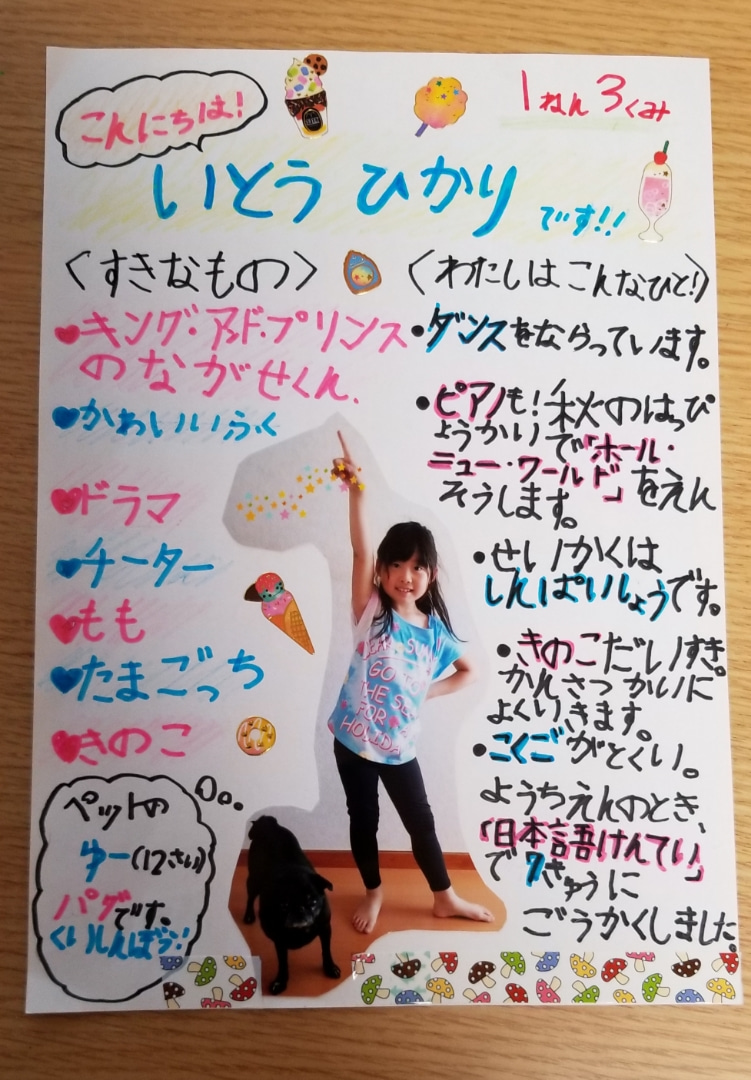 こんにちは!
1ねん3くみ
いとうひかり
です!!
〈すきなもの〉
キング・アンド・プリンス
のながせくん.
かわいいふく
ドラマ
チーター
もも
たまごっち
きのこ
ペットの
ゆー(12さい)
パグです。
くいしんぼう!
〈わたしはこんなひと!〉
・ダンスをならっています。
・ピアノも!秋のはっぴ
ょうかいで「ホール・
ニュー・ワールド」をえん
そうします。
・せいかくは
しんぱいしょうです。
・きのこだいすき。
かんさつかいに
よくいきます。
・こくごがとくい。
ようちえんのとき、
「日本語けんてい」
で7きゅうに
ごうかくしました。
GO TO
THE SEA
FOR
HOLIDA